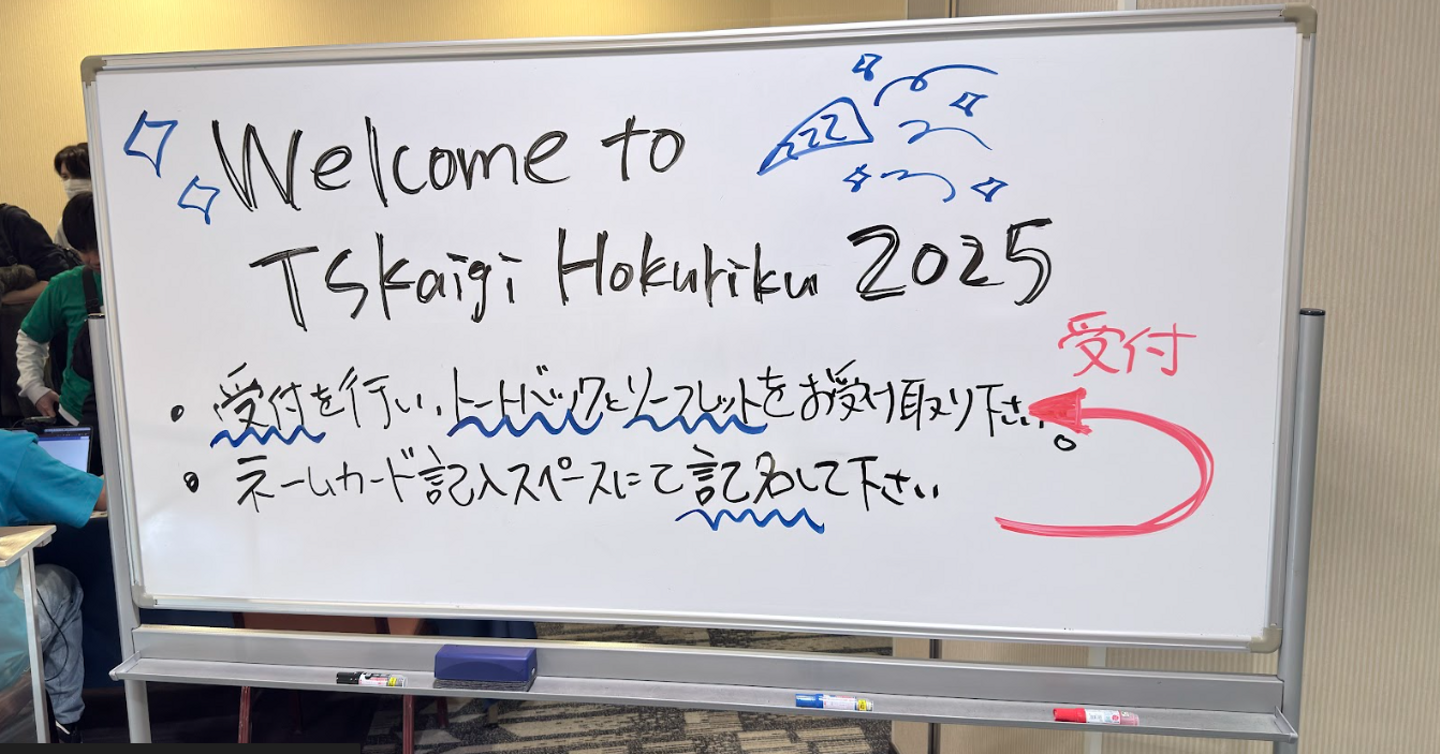 Welcome to
TSkaigi Hokuriku 2025
受付
・受付を行い、トートバックとリーフレットをお受け取り下さい。
・ネームカード記入スペースにて記名して下さい